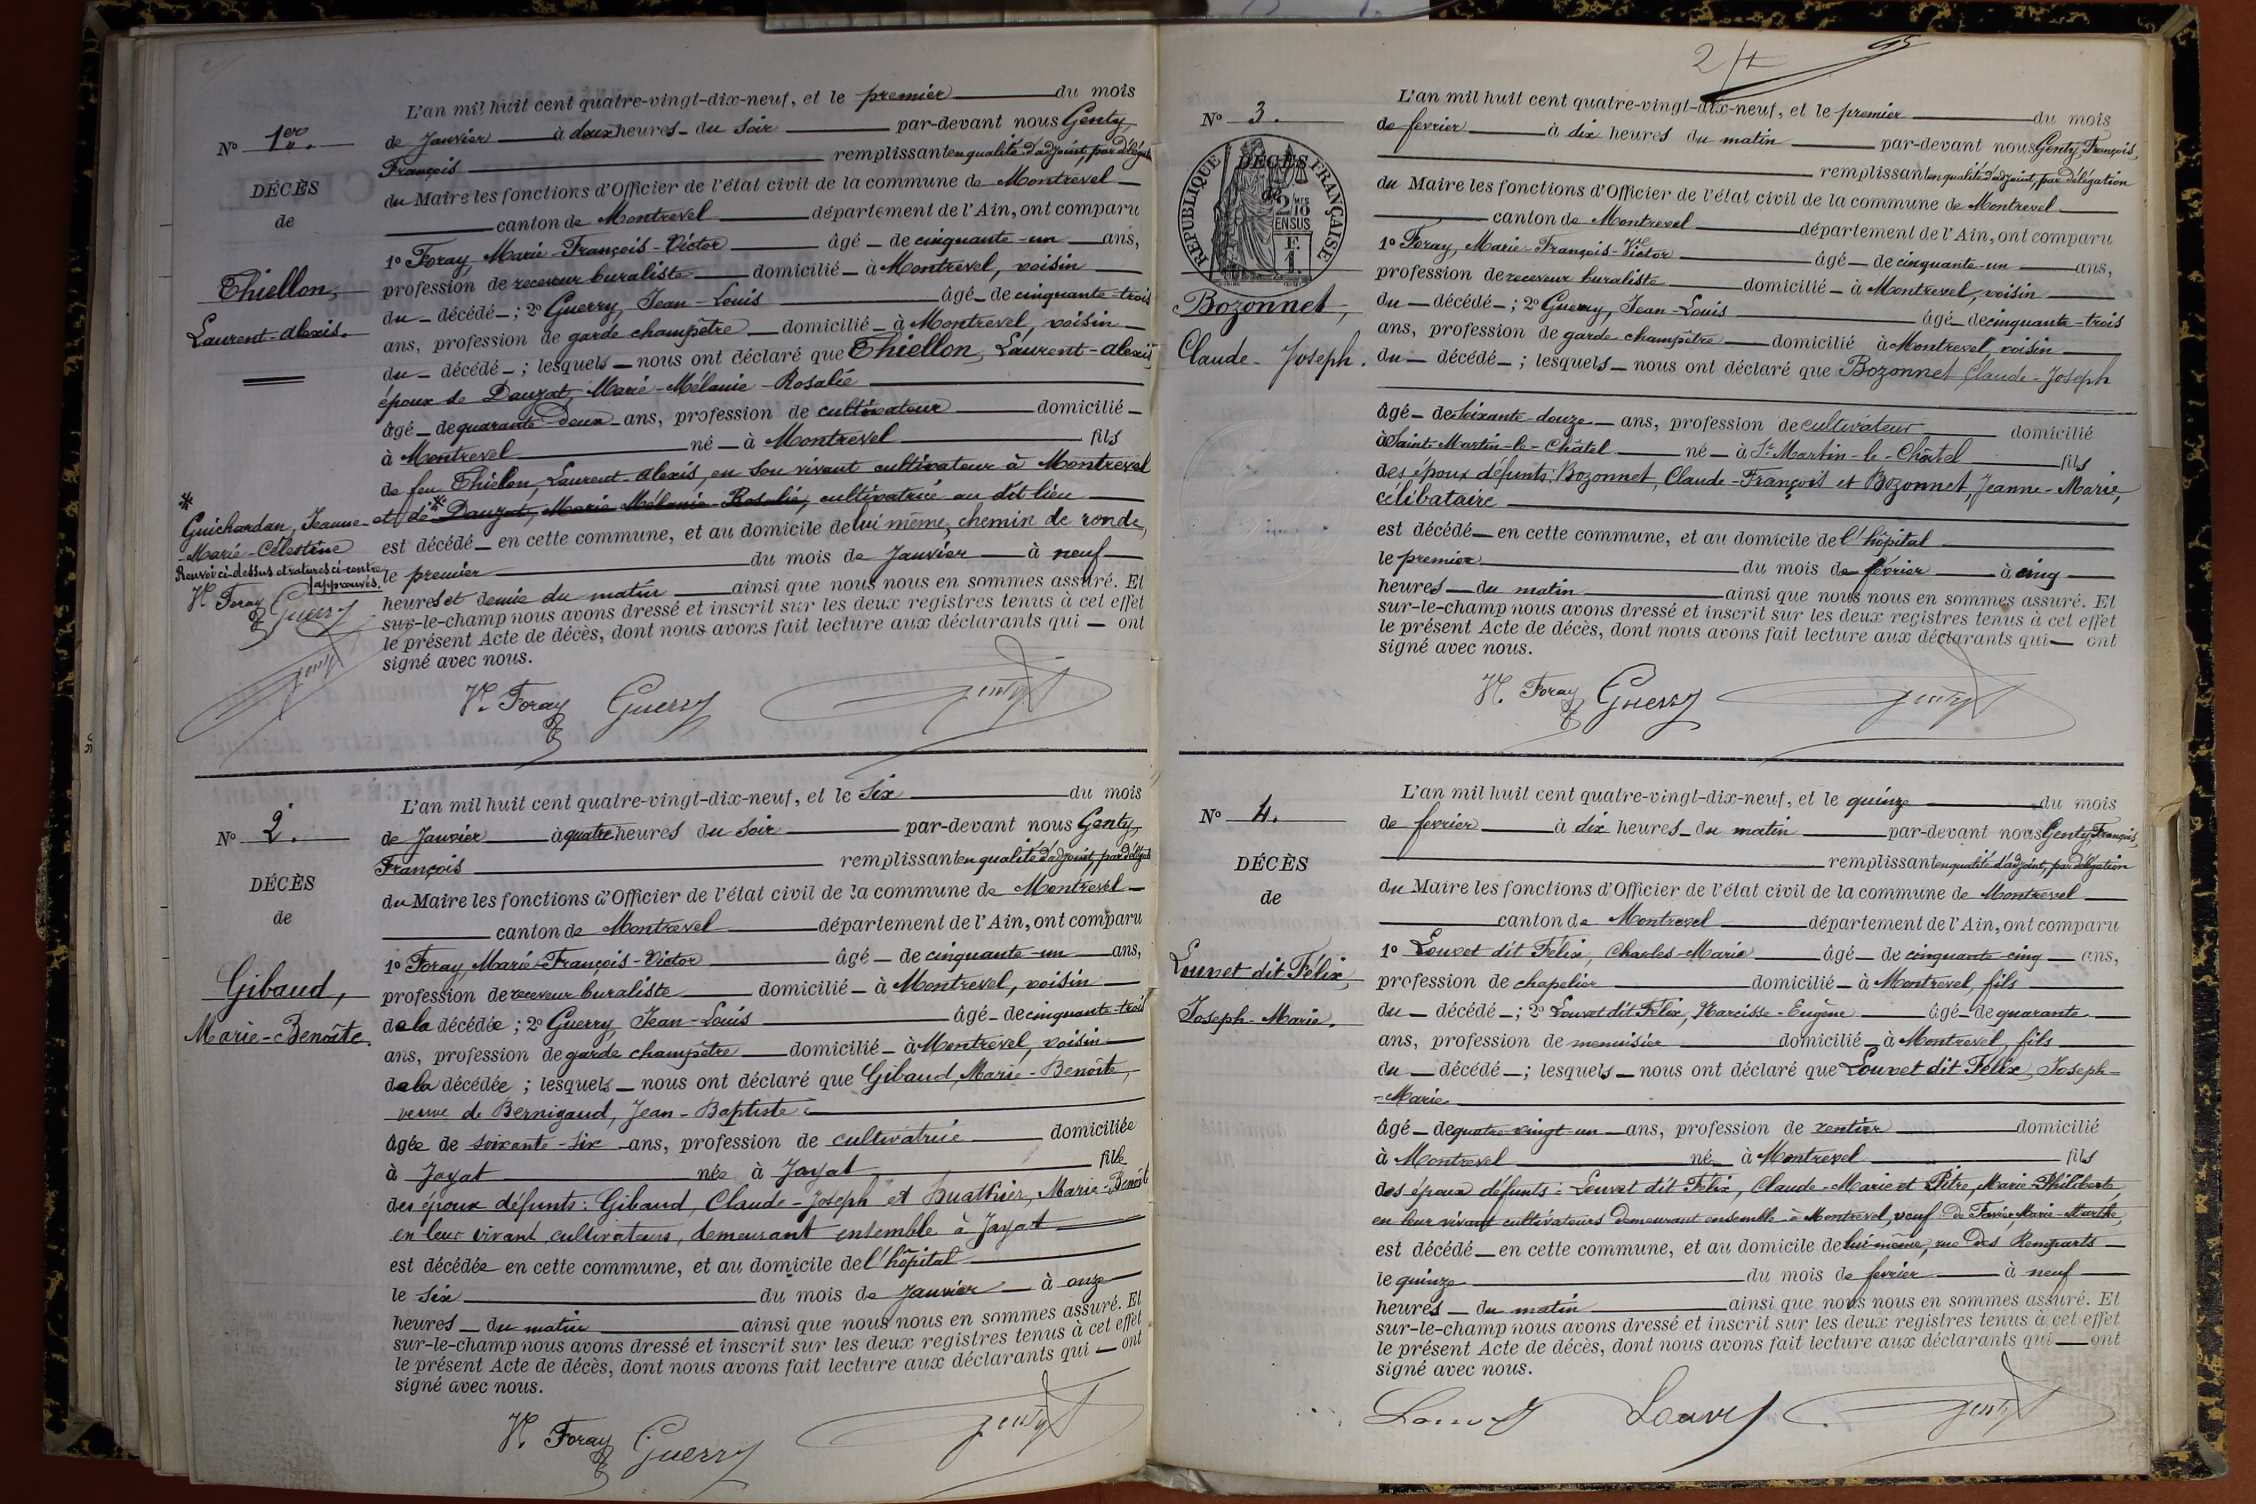 L'an mil huit cent quatre-vingt-dix-neuf, et le premier du mois
de Janvier à deux heures du soir par-devant nous Genty,
François remplissant en qualité d'adjoint, par délégation
du Maire les fonctions d'Officier de l'état civil de la commune de Montrevel
canton de Montrevel département de l'Ain, ont comparu
1º Foray, Marie-François-Victor âgé de cinquante-un ans,
profession de receveur buraliste domicilié à Montrevel, voisin
du décédé ; 2º Guerry, Jean-Louis âgé de cinquante-trois
ans, profession de garde champêtre domicilié à Montrevel, voisin
du décédé ; lesquels nous ont déclaré que Thiellon, Laurent-Alexis
époux de Dauzat, Marie-Mélanie-Rosalie
âgé de quarante-deux ans, profession de cultivateur domicilié
à Montrevel né à Montrevel fils
de feu Thiellon, Laurent-Alexis, en son vivant cultivateur à Montrevel
et de * Dauzat, Marie Mélanie Rosalie, cultivatrice au dit lieu
est décédé en cette commune, et au domicile de lui même, chemin de ronde,
le premier du mois de Janvier à neuf
heures et demie du matin ainsi que nous nous en sommes assuré. Et
sur-le-champ nous avons dressé et inscrit sur les deux registres tenus à cet effet
le présent Acte de décès, dont nous avons fait lecture aux déclarants qui ont
signé avec nous.
V. Foray Guerry Genty
Nº 1er.
DÉCÈS
de
Thiellon,
Laurent-Alexis.
*
Guichardan, Jeanne-
-Marie-Célestine
Renvoi ci-dessus et ratures ci-contre
approuvés.
V. Foray Guerry
Genty
L'an mil huit cent quatre-vingt-dix-neuf, et le six du mois
de Janvier à quatre heures du soir par-devant nous Genty,
François remplissant en qualité d'adjoint, par délégation
du Maire les fonctions d'Officier de l'état civil de la commune de Montrevel
canton de Montrevel département de l'Ain, ont comparu
1º Foray, Marie-François-Victor âgé de cinquante-un ans,
profession de receveur buraliste domicilié à Montrevel, voisin
de la décédée ; 2º Guerry, Jean-Louis âgé de cinquante-trois
ans, profession de garde champêtre domicilié à Montrevel, voisin
de la décédée ; lesquels nous ont déclaré que Gibaud, Marie-Benoîte,
veuve de Bernigaud, Jean-Baptiste
âgée de soixante-six ans, profession de cultivatrice domiciliée
à Jayat née à Jayat fille
des époux défunts : Gibaud, Claude-Joseph et Huathier, Marie-Benoîte
en leur vivant cultivateurs, demeurant ensemble à Jayat
est décédée en cette commune, et au domicile de l'hôpital
le six du mois de Janvier à onze
heures du matin ainsi que nous nous en sommes assuré. Et
sur-le-champ nous avons dressé et inscrit sur les deux registres tenus à cet effet
le présent Acte de décès, dont nous avons fait lecture aux déclarants qui ont
signé avec nous.
V. Foray Guerry Genty
Nº 2.
DÉCÈS
de
Gibaud,
Marie-Benoîte.
2
L'an mil huit cent quatre-vingt-dix-neuf, et le premier du mois
de fevrier à dix heures du matin par-devant nous Genty, François,
remplissant en qualité d'adjoint, par délégation
du Maire les fonctions d'Officier de l'état civil de la commune de Montrevel
canton de Montrevel département de l'Ain, ont comparu
1º Foray, Marie-François-Victor âgé de cinquante-un ans,
profession de receveur buraliste domicilié à Montrevel, voisin
du décédé ; 2º Guerry, Jean-Louis âgé de cinquante-trois
ans, profession de garde champêtre domicilié à Montrevel, voisin
du décédé ; lesquels nous ont déclaré que Bozonnet, Claude-Joseph
âgé de soixante-douze ans, profession de cultivateur domicilié
à Saint-Martin-le-Châtel né à St Martin-le-Châtel fils
des époux défunts : Bozonnet, Claude-François et Bozonnet, Jeanne-Marie,
célibataire
est décédé en cette commune, et au domicile de l'hôpital
le premier du mois de février à cinq
heures du matin ainsi que nous nous en sommes assuré. Et
sur-le-champ nous avons dressé et inscrit sur les deux registres tenus à cet effet
le présent Acte de décès, dont nous avons fait lecture aux déclarants qui ont
signé avec nous.
V. Foray Guerry Genty
Nº 3.
DÉCÈS
de
RÉPUBLIQUE FRANÇAISE
2/10
EN SUS
F.
1.
Bozonnet,
Claude-Joseph.
L'an mil huit cent quatre-vingt-dix-neuf, et le quinze du mois
de fevrier à dix heures du matin par-devant nous Genty, François,
remplissant en qualité d'adjoint, par délégation
du Maire les fonctions d'Officier de l'état civil de la commune de Montrevel
canton de Montrevel département de l'Ain, ont comparu
1º Louvet dit Félix, Charles-Marie âgé de cinquante-cinq ans,
profession de chapelier domicilié à Montrevel, fils
du décédé ; 2º Louvet dit Félix, Narcisse-Eugène âgé de quarante
ans, profession de menuisier domicilié à Montrevel, fils
du décédé ; lesquels nous ont déclaré que Louvet dit Félix, Joseph-
-Marie
âgé de quatre-vingt-un ans, profession de rentier domicilié
à Montrevel né à Montrevel fils
des époux défunts : Louvet dit Félix, Claude-Marie et Pitre, Marie-Philiberte,
en leur vivant cultivateurs demeurant ensemble à Montrevel, veuf de Favier, Marie-Marthe,
est décédé en cette commune, et au domicile de lui-même, rue des Remparts
le quinze du mois de fevrier à neuf
heures du matin ainsi que nous nous en sommes assuré. Et
sur-le-champ nous avons dressé et inscrit sur les deux registres tenus à cet effet
le présent Acte de décès, dont nous avons fait lecture aux déclarants qui ont
signé avec nous.
Louvet Louvet Genty
Nº 4.
DÉCÈS
de
Louvet dit Félix,
Joseph-Marie.